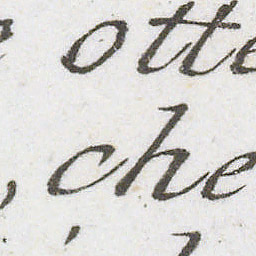 otte
, che